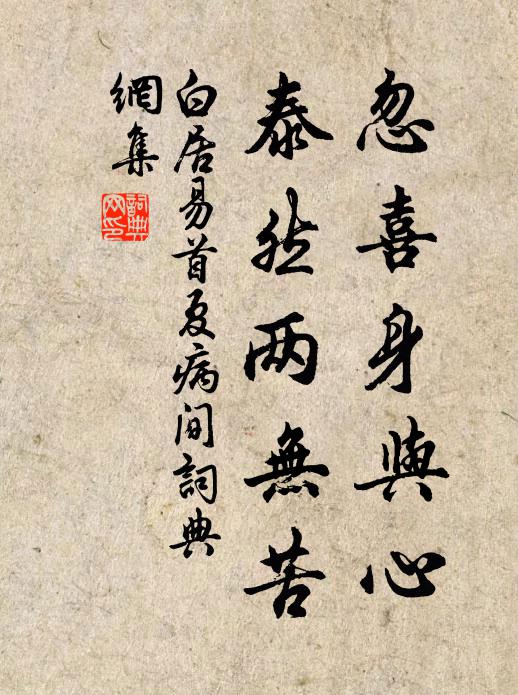 忽喜身與心
泰然两無苦
白居易首夏病间詞典
網集
詞典網印